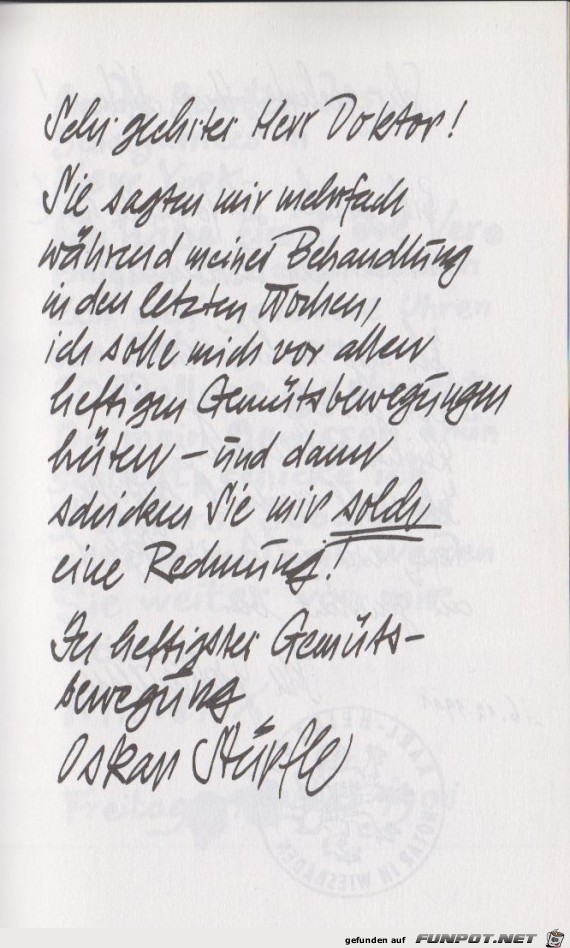 Sehr geehrter Herr Doktor!
Sie sagten mir mehrfach
während meiner Behandlung
in den letzten Wochen,
ich solle mich vor allen
heftigen Gemütsbewegungen
hüten – und dann
schicken Sie mir solch
eine Rechnung!
In heftigster Gemüts-
bewegung
Oskar
gefunden auf FUNPOT.NET